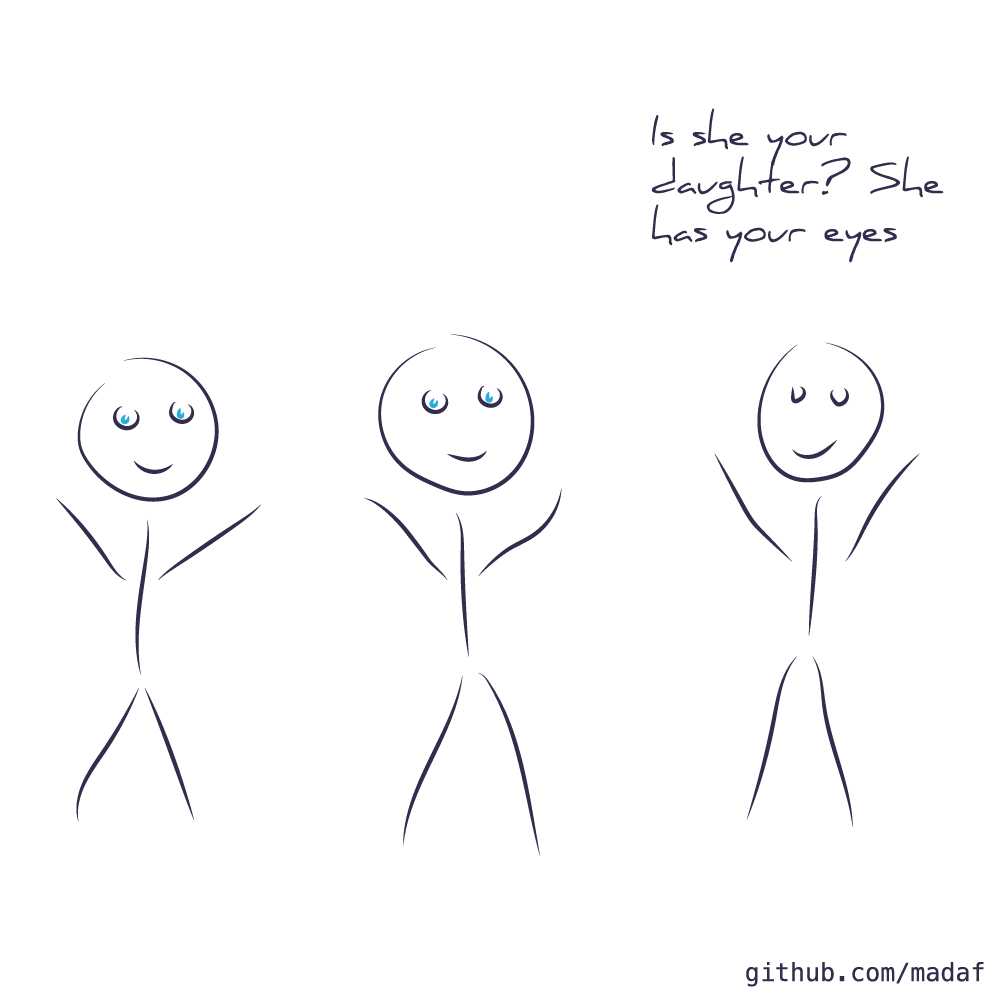 Is she your
daughter? She
has your eyes
github.com/madaf